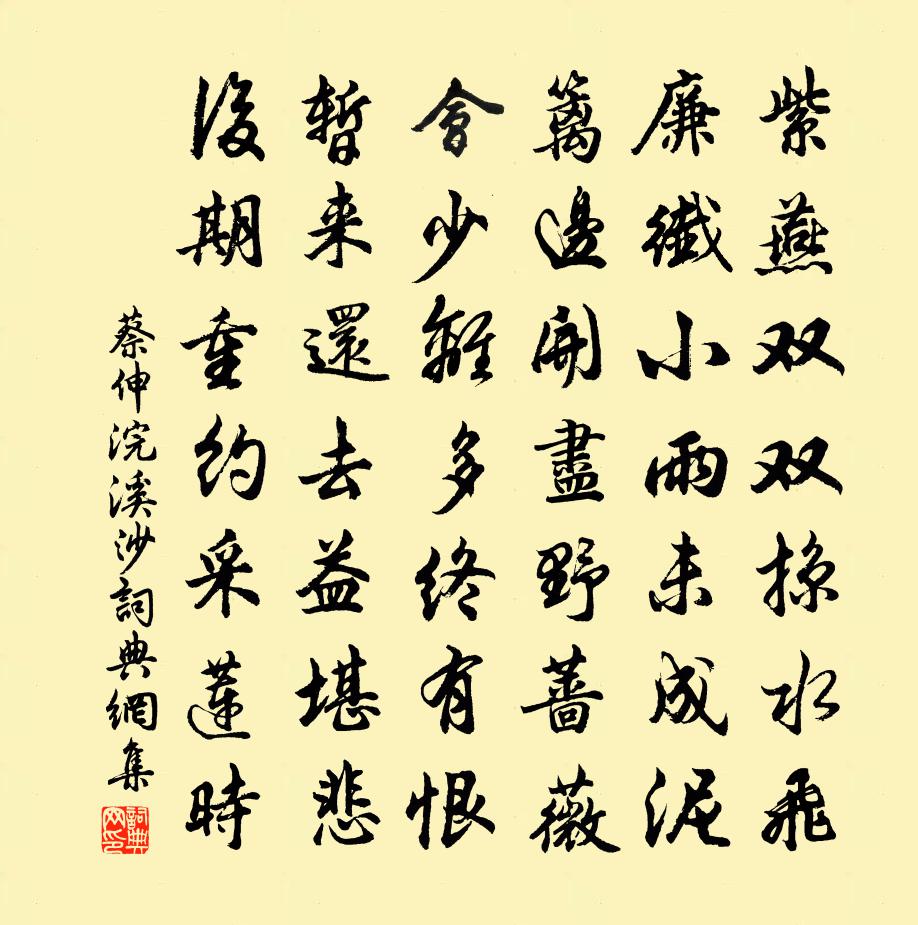 紫燕双双掠水飛
廉纖小雨未成泥
篱邊開盡野蔷薇
會少離多終有恨
暫来還去益堪悲
後期重约采蓮時
蔡伸浣溪沙詞典網集
詞典网印